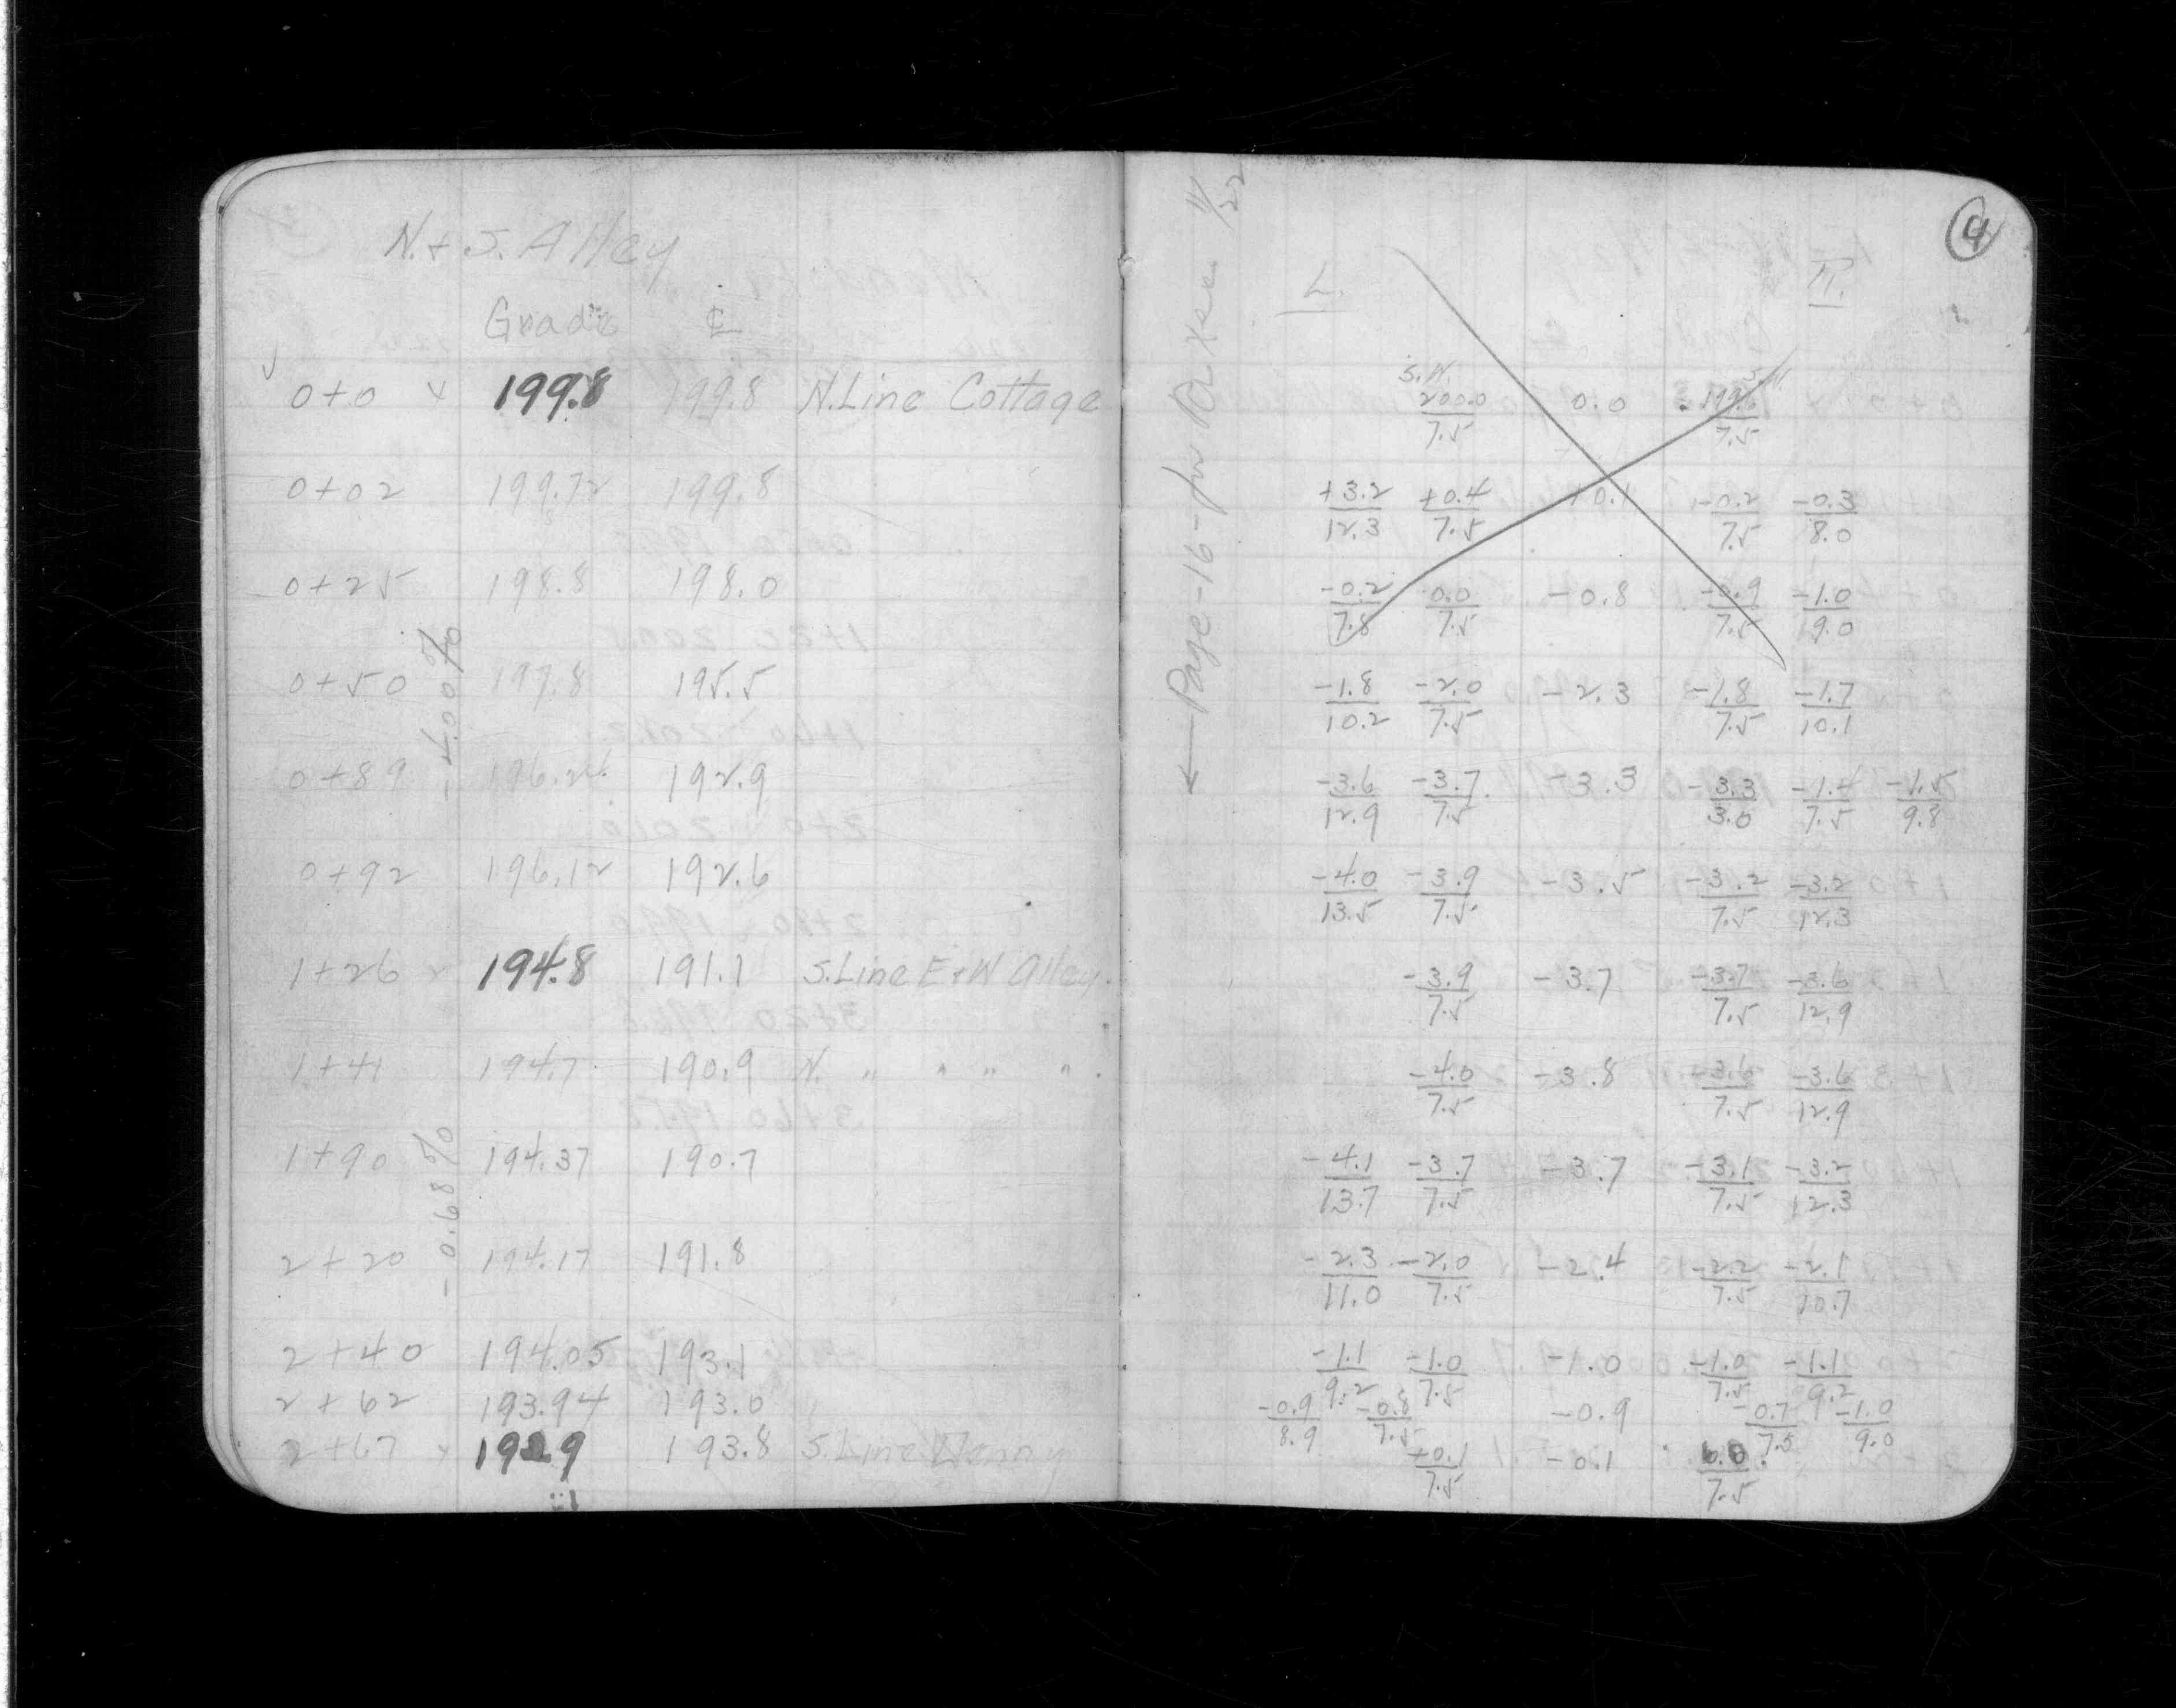 N. & S. Alley
Grade ℄
0+0 199.8 199.8 N. Line Cottage
0+02 199.72 199.8
0+25 198.8 198.0
0+50 197.8 195.5
-4.00%
0+89 196.24 192.9
0+92 196.12 192.6
1+26 194.8 191.1 S. Line E & W Alley.
1+41 194.7 190.9 N. " " " "
1+90 194.37 190.7
-0.68%
2+20 194.17 191.8
2+40 194.05 193.1
2+62 193.94 193.0
2+67 193.8 S. Line Denny
4
← Page-16-for 11/22
L. R.
S.W. 200.0/7.5 0.0 S.W. 199.6/7.5
+3.2/12.3 +0.4/7.5 +0.1 -0.2/7.5 -0.3/8.0
-0.2/7.8 0.0/7.5 -0.8 -0.9/7.5 -1.0/9.0
-1.8/10.2 -2.0/7.5 -2.3 -1.8/7.5 -1.7/10.1
-3.6/12.9 -3.7/7.5 -3.3 -3.3/3.0 -1.4/7.5 -1.5/9.8
-4.0/13.5 -3.9/7.5 -3.5 -3.2/7.5 -3.2/12.3
-3.9/7.5 -3.7 -3.7/7.5 -3.6/12.9
-4.0/7.5 -3.8 -3.6/7.5 -3.6/12.9
-4.1/13.7 -3.7/7.5 -3.7 -3.1/7.5 -3.2/12.3
-2.3/11.0 -2.0/7.5 -2.4 -2.2/7.5 -2.1/10.7
-1.1/9.2 -1.0/7.5 -1.0 -1.0/7.5 -1.1/9.2
-0.9/8.9 -0.8/7.5 -0.9 -0.7/7.5 -1.0/9.0
+0.1/7.5 -0.1 0.0/7.5